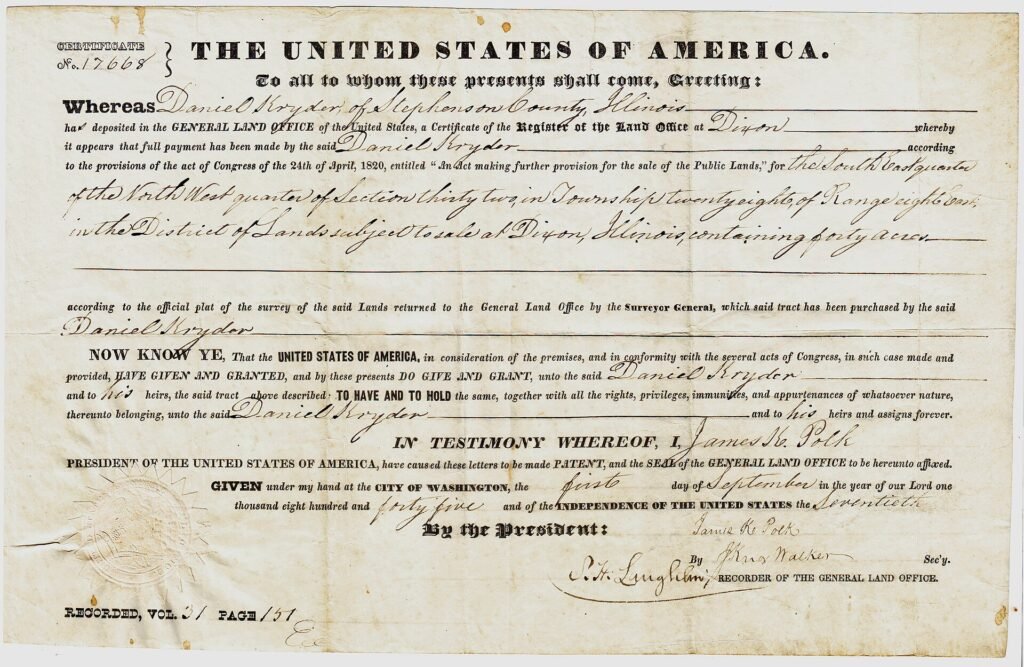 CERTIFICATE
No. 17668
THE UNITED STATES OF AMERICA.
To all to whom these presents shall come, Greeting:
Whereas Daniel Kryder, of Stephenson County, Illinois
has deposited in the GENERAL LAND OFFICE of the United States, a Certificate of the Register of the Land Office at Dixon whereby
it appears that full payment has been made by the said Daniel Kryder according
to the provisions of the act of Congress of the 24th of April, 1820, entitled "An Act making further provision for the sale of the Public Lands," for the South East quarter
of the North West quarter of Section thirty two, in Township twenty eight, of Range eight East,
in the District of Lands subject to sale at Dixon, Illinois, containing forty acres
according to the official plat of the survey of the said Lands returned to the General Land Office by the Surveyor General, which said tract has been purchased by the said
Daniel Kryder
NOW KNOW YE, That the UNITED STATES OF AMERICA, in consideration of the premises, and in conformity with the several acts of Congress, in such case made and
provided, HAVE GIVEN AND GRANTED, and by these presents DO GIVE AND GRANT, unto the said Daniel Kryder
and to his heirs, the said tract above described: TO HAVE AND TO HOLD the same, together with all the rights, privileges, immunities, and appurtenances of whatsoever nature,
thereunto belonging, unto the said Daniel Kryder and to his heirs and assigns forever.
IN TESTIMONY WHEREOF, I, James K. Polk
PRESIDENT OF THE UNITED STATES OF AMERICA, have caused these letters to be made PATENT, and the SEAL of the GENERAL LAND OFFICE to be hereunto affixed.
GIVEN under my hand at the CITY OF WASHINGTON, the first day of September in the year of our Lord one
thousand eight hundred and forty five and of the INDEPENDENCE OF THE UNITED STATES the Seventieth
By the President: James K. Polk
By J Knox Walker Sec'y.
S. H. Laughlin, RECORDER OF THE GENERAL LAND OFFICE.
RECORDED, VOL. 31 PAGE 151